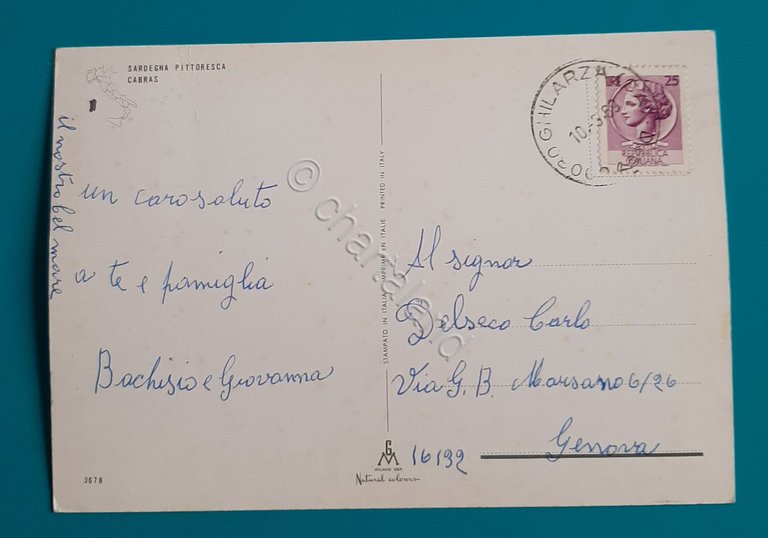 SARDEGNA PITTORESCA
CABRAS
il nostro bel mare
un caro saluto
a te e famiglia
Bachisio e Giovanna
3678
STAMPATO IN ITALIA IMPRIME EN ITALIE PRINTED IN ITALY
GM
Natural colorers
GHILARZA
25
REPUBBLICA
ITALIANA
Al signor
Delseco Carlo
Via G. B. Marsano 6/26
16132 Genova
© chartaland